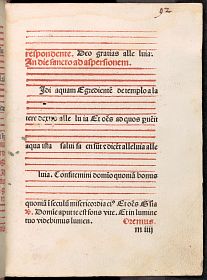 92
respondente. Deo gratias alle luia.
In die sancto ad aspersionem.
Idi aquam Egrediente de templo a la
tere dextro alle lu ia Et oēs ad quos puēit
aqua ista salui fa cti sūt ⁊ dicēt alleluia alle
luia. Confitemini domīo quoniā bonus
quoniā ī seculū misericordia ei⁹. Et oēs
℣. Domie apud te est fons vite. Et in lumine
tuo videbimus lumen. Oremus.
m iiij